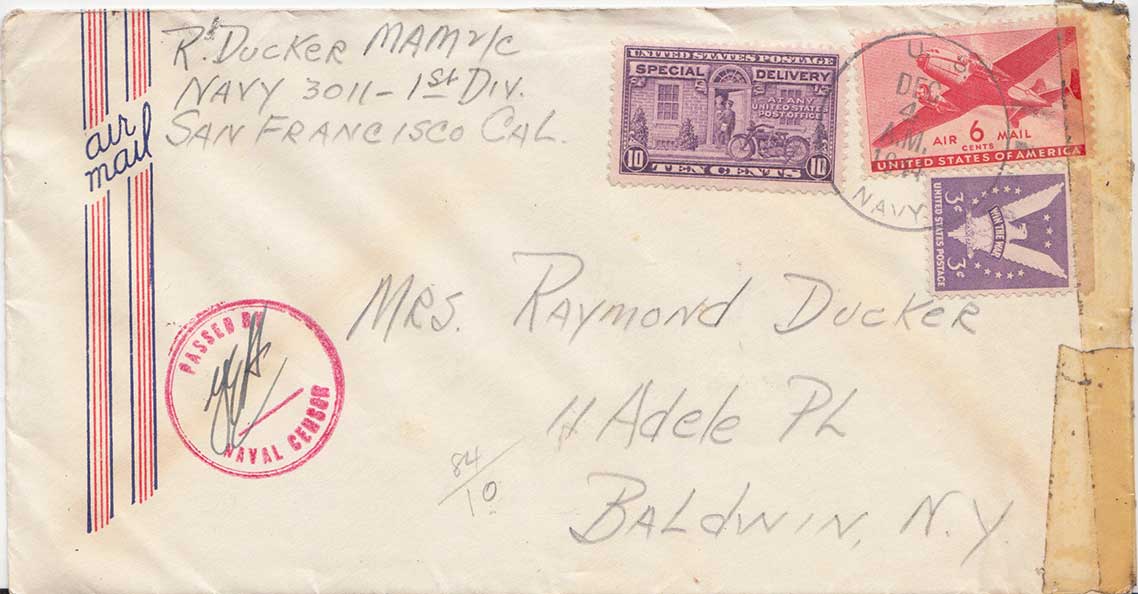 R. DUCKER MAM 2/C
NAVY 3011 - 1st DIV.
SAN FRANCISCO CAL.
air
mail
UNITED STATES POSTAGE
SPECIAL DELIVERY
AT ANY
UNITED STATES
POST OFFICE
10 TEN CENTS 10
AIR 6 MAIL
CENTS
UNITED STATES OF AMERICA
U.S.
DEC
4
A.M.
1944
NAVY
UNITED STATES POSTAGE
WIN THE WAR
3¢ 3¢
MRS. RAYMOND DUCKER
11 Adele PL
BALDWIN, N.Y.
PASSED BY
NAVAL CENSOR
84
10